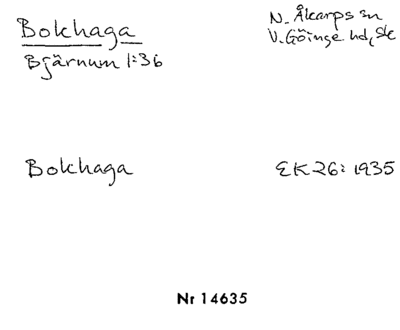 Bokhaga
Bjärnum 1:36
N. Åkarps sn
V. Göinge hd, Sk
Bokhaga
EK 26: 1935
Nr 14635